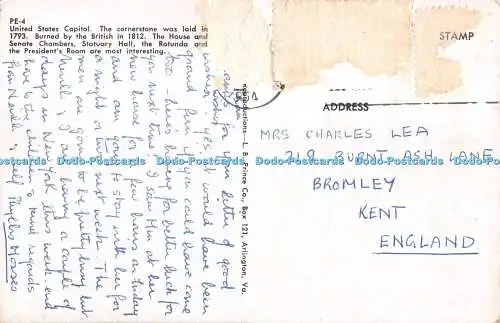 PE-4
United States Capitol. The cornerstone was laid in
1793. Burned by the British in 1812. The House and
Senate Chambers, Statuary Hall, the Rotunda and
the President's Room are most interesting.
STAMP
ADDRESS
for your letter of good
wishes - yes it would have been
grand fun if you could have come
too - here's hoping for better luck for
you next time. I saw at her
new house for a few hours on Tuesday
and am going to stay with her for
a night or two next week. The
men are going to be pretty busy but
& I are having a couple of
days in New York this week-end
love to the children & kind regards
from Neville & self Phyllis
Reproductions - L. B. Prince Co., Box 121, Arlington, Va.
MRS CHARLES LEA
218 BURNT ASH LANE
BROMLEY
KENT
ENGLAND
Dodo-Postcards Dodo-Postcards Dodo-Postcards Dodo-Postcards